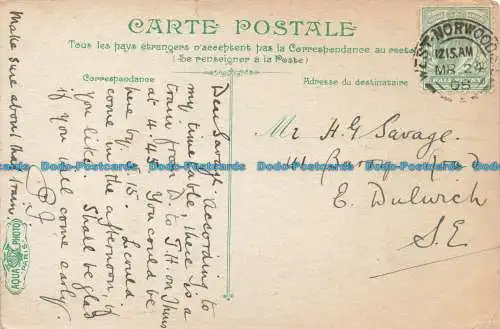 CARTE POSTALE
Tous les pays étrangers n'acceptent pas la Correspondance au recto
(Se renseigner à la Poste)
Correspondance
Adresse du destinataire
WEST NORWOOD
12.15 AM
MR 4
05
Mr H. G. Savage.
141
Road
E. Dulwich
S.E
Dear Savage. According to
my time table, there is a
train from D to T.H. on Thurs
at 4.45. You could be
here by 5.15. I could
come in the afternoon, if
you like. Shall be glad
if you will come early.
Make sure about that train.
AQUA PHOTO
PARIS
Dodo-Postcards Dodo-Postcards Dodo-Postcards Dodo-Postcards
Dodo-Postcards Dodo-Postcards Dodo-Postcards Dodo-Postcards